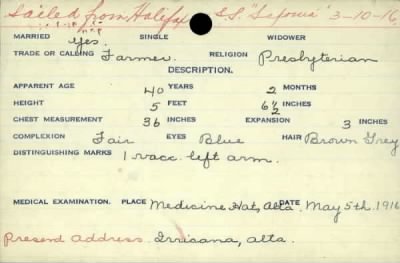 Sailed from Halifax S.S. "Laponia" 3-10-16
MARRIED yes. SINGLE WIDOWER
TRADE OR CALLING Farmer. RELIGION Presbyterian
DESCRIPTION.
APPARENT AGE 40 YEARS 2 MONTHS
HEIGHT 5 FEET 6½ INCHES
CHEST MEASUREMENT 36 INCHES EXPANSION 3 INCHES
COMPLEXION Fair EYES Blue HAIR Brown Grey
DISTINGUISHING MARKS 1 vacc. left arm.
MEDICAL EXAMINATION. PLACE Medicine Hat, Alta. DATE May 5th. 1916
Present Address. Irricana, Alta.